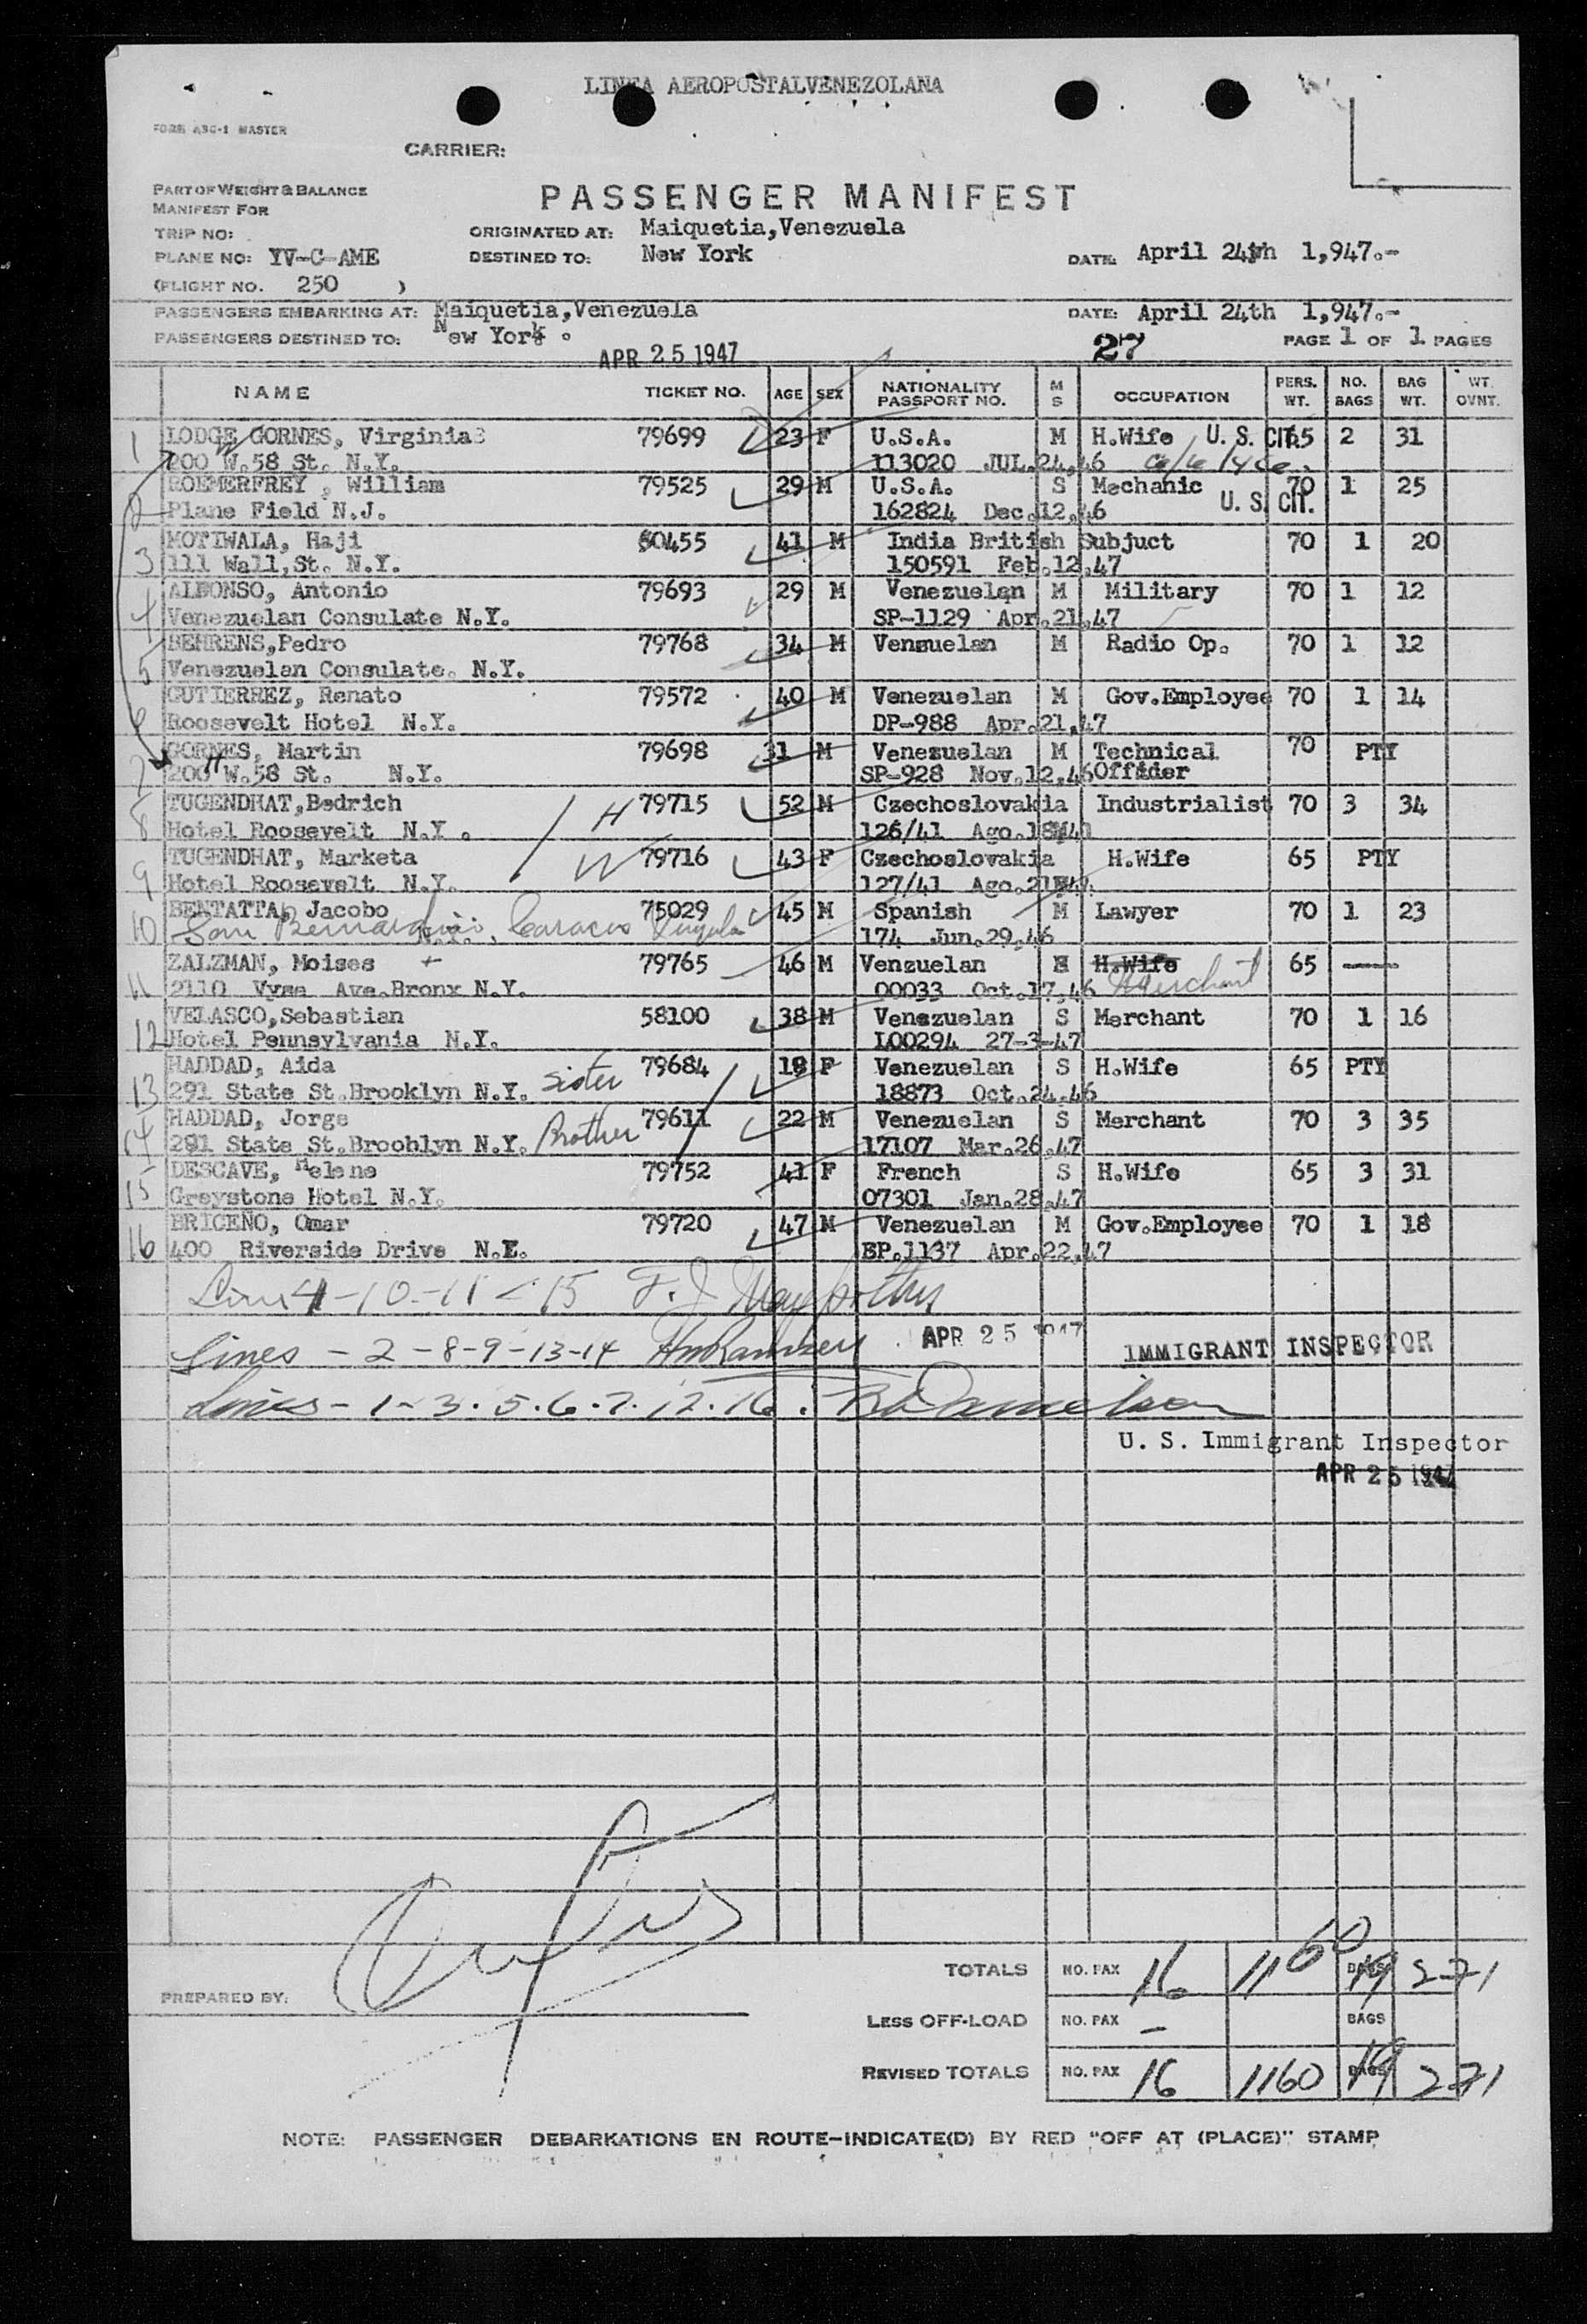 LINEA AEROPOSTALVENEZOLANA
FORM ASC-1 MASTER
CARRIER:
PART OF WEIGHT & BALANCE
MANIFEST FOR
PASSENGER MANIFEST
TRIP NO:
ORIGINATED AT: Maiquetia,Venezuela
PLANE NO: YV-C-AME DESTINED TO: New York DATE: April 24th 1,947.-
(FLIGHT NO. 250 )
PASSENGERS EMBARKING AT: Maiquetia,Venezuela DATE: April 24th 1,947.-
PASSENGERS DESTINED TO: New York . APR 25 1947 27 PAGE 1 OF 1 PAGES
NAME TICKET NO. AGE SEX NATIONALITY PASSPORT NO. M S OCCUPATION PERS. WT. NO. BAGS BAG WT. WT. OVNT.
1 LODGE GORNES, Virginia 79699 23 F U.S.A. M H.Wife U. S. CIT. 65 2 31
200 W.58 St. N.Y. 113020 JUL.24,46
2 ROEMERFREY , William 79525 29 M U.S.A. S Mechanic 70 1 25
Plane Field N.J. 162824 Dec.12,46 U. S. CIT.
3 MOTIWALA, Haji 60455 41 M India British Subjuct 70 1 20
111 Wall,St. N.Y. 150591 Feb.12,47
4 ALFONSO, Antonio 79693 29 M Venezuelan M Military 70 1 12
Venezuelan Consulate N.Y. SP-1129 Apr.21,47
5 BEHRENS,Pedro 79768 34 M Venzuelan M Radio Op. 70 1 12
Venezuelan Consulate. N.Y.
6 GUTIERREZ, Renato 79572 40 M Venezuelan M Gov.Employee 70 1 14
Roosevelt Hotel N.Y. DP-988 Apr.21,47
7 GORNES, Martin 79698 31 M Venezuelan M Technical 70 PTY
200 W.58 St. N.Y. SP-928 Nov.12,46 Offider
8 TUGENDHAT,Bedrich H 79715 52 M Czechoslovakia Industrialist 70 3 34
Hotel Roosevelt N.Y . 126/41 Ago.18,41
9 TUGENDHAT, Marketa W 79716 43 F Czechoslovakia H.Wife 65 PTY
Hotel Roosevelt N.Y. 127/41 Ago.21,41
10 BENTATTA, Jacobo 75029 45 M Spanish M Lawyer 70 1 23
San Bernardino, Caracas 174 Jun.29,46
11 ZALZMAN, Moises 79765 46 M Venzuelan H.Wife 65 —
2110 Vyse Ave.Bronx N.Y. 00033 Oct.17,46 Merchant
12 VELASCO,Sebastian 58100 38 M Venezuelan S Merchant 70 1 16
Hotel Pennsylvania N.Y. L00294 27-3-47
13 HADDAD, Aida 79684 19 F Venezuelan S H.Wife 65 PTY
291 State St.Brooklyn N.Y. Sister 18873 Oct.24,46
14 HADDAD, Jorge 79611 22 M Venezuelan S Merchant 70 3 35
291 State St.Broohlyn N.Y. Brother 17107 Mar.26,47
15 DESCAVE, Helene 79752 41 F French S H.Wife 65 3 31
Greystone Hotel N.Y. 07301 Jan.28,47
16 BRICEÑO, Omar 79720 47 M Venezuelan M Gov.Employee 70 1 18
400 Riverside Drive N.Y. EP.1137 Apr.22,47
Lines 4-10-11-15 F. J.
Lines - 2 - 8-9-13-14 APR 25 1947 IMMIGRANT INSPECTOR
Lines - 1-3.5.6.7.12.16.
U. S. Immigrant Inspector
APR 25 1947
TOTALS NO. PAX 16 1160 BAGS 19 271
PREPARED BY:
LESS OFF-LOAD NO. PAX — BAGS
REVISED TOTALS NO. PAX 16 1160 BAGS 19 271
NOTE: PASSENGER DEBARKATIONS EN ROUTE-INDICATE(D) BY RED "OFF AT (PLACE)" STAMP